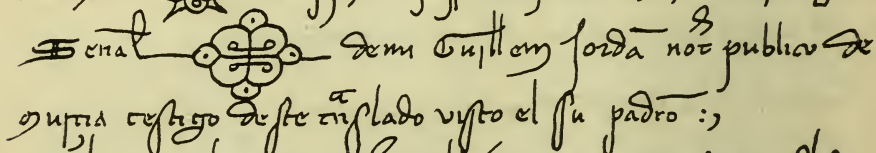 Senal de mi Guillem Jordã noť publico de
murcia testigo deste tñslado visto el su padrõ :,